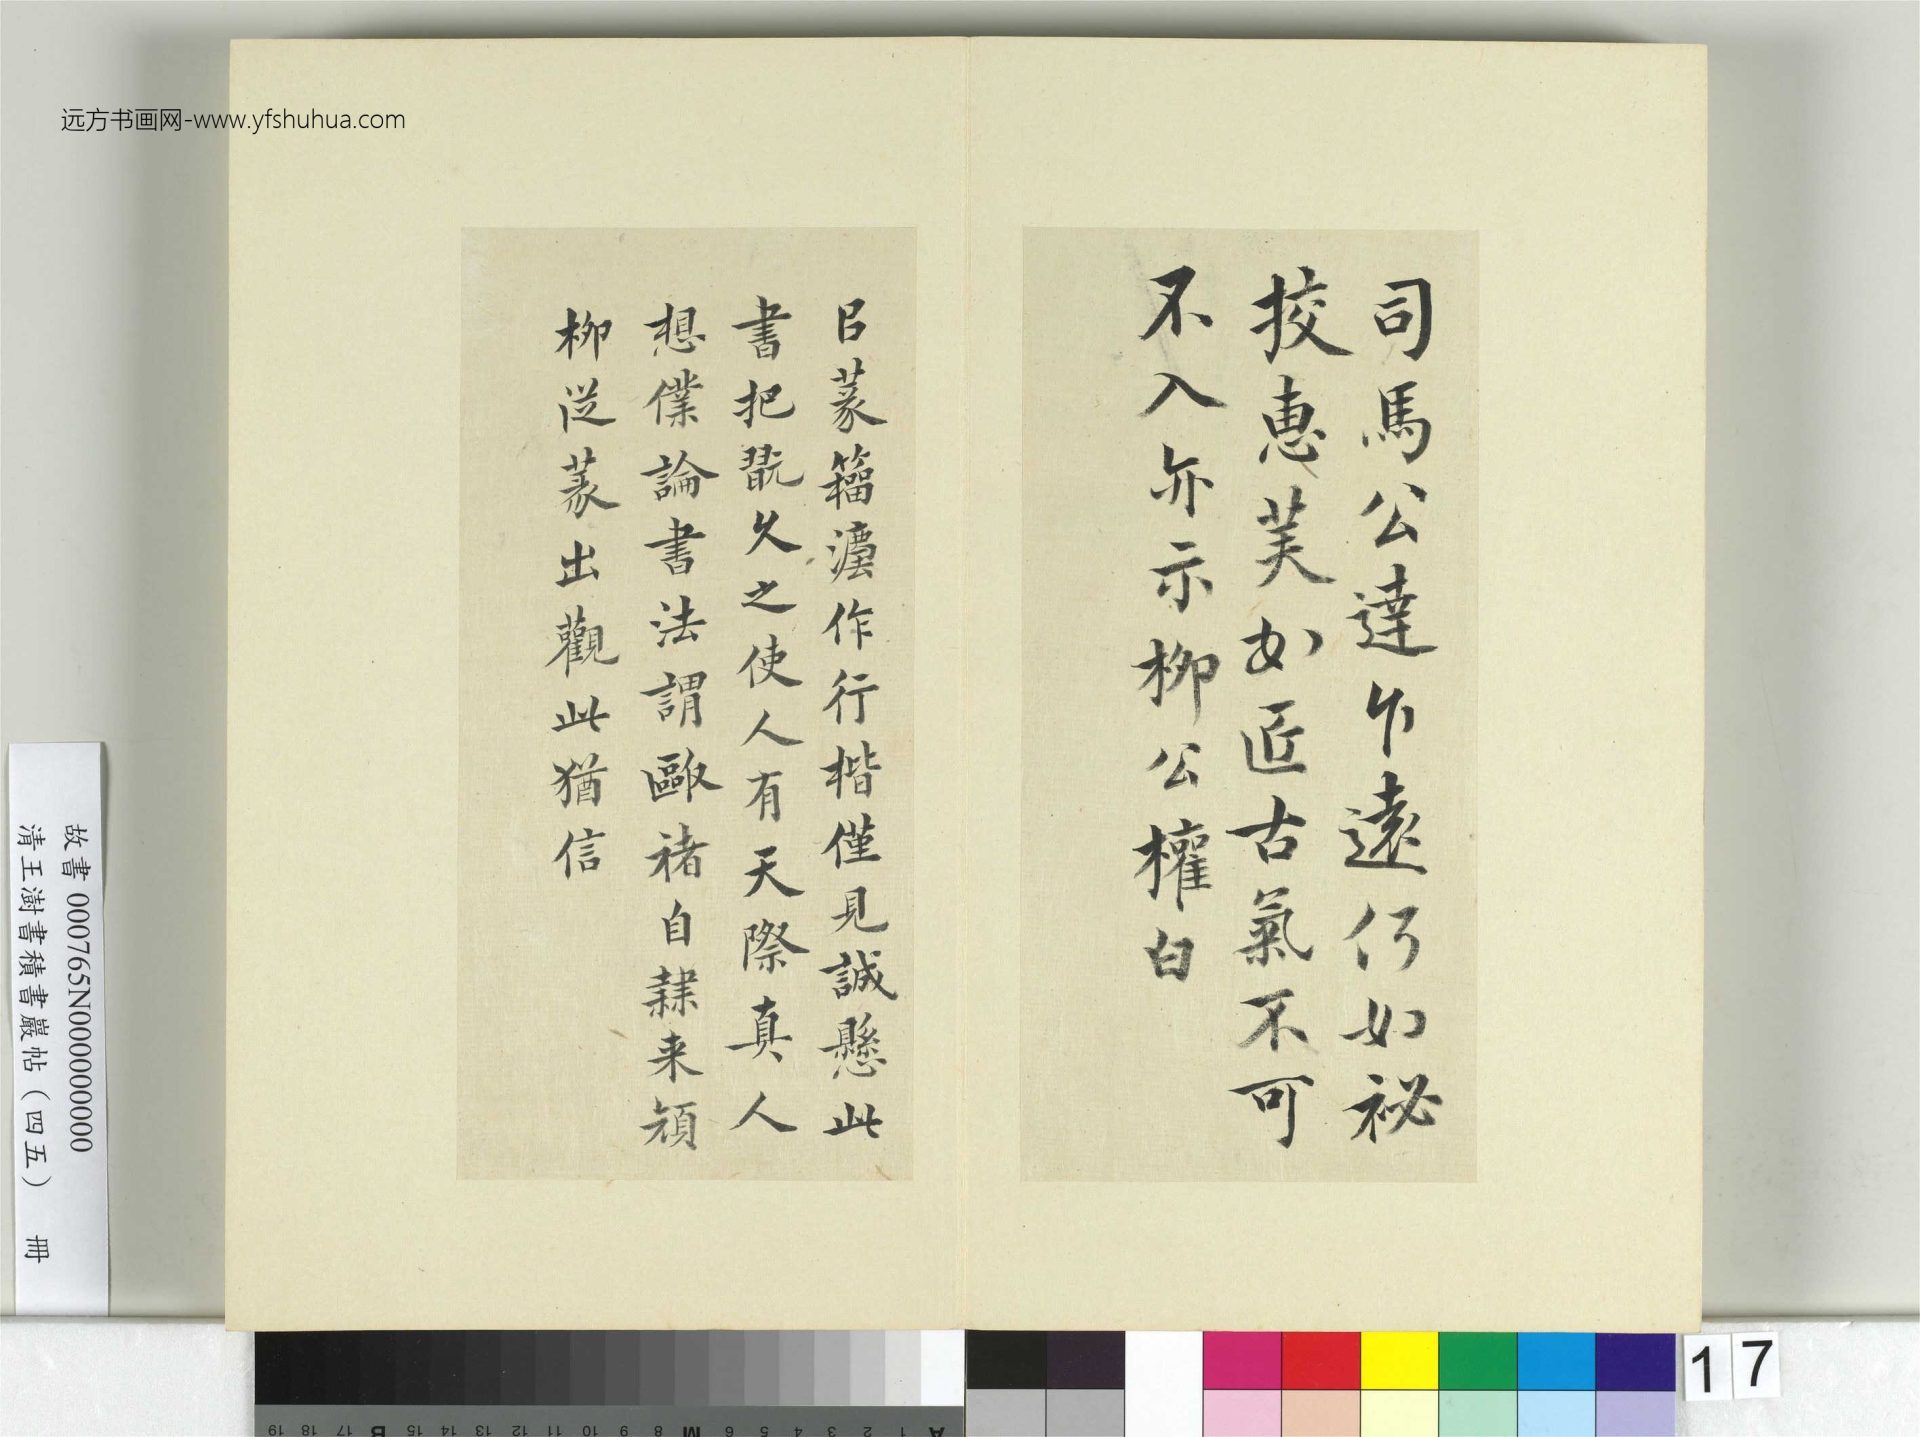 远方书画网-www.yfshuhua.com
司馬公達乍遠仍如祕
挍惠芙如匠古氣不可
不入尔示柳公權白
㠯篆籀灋作行楷僅見誠懸此
書把翫久之使人有天際真人
想僕論書法謂歐褚自隸来顔
柳從篆出觀此猶信
故書 000765N000000000
清王澍書積書巖帖（四五） 冊
17
19 18 17 B 15 14 13 12 11 10 9 8 M 6 5 4 3 2 1 A